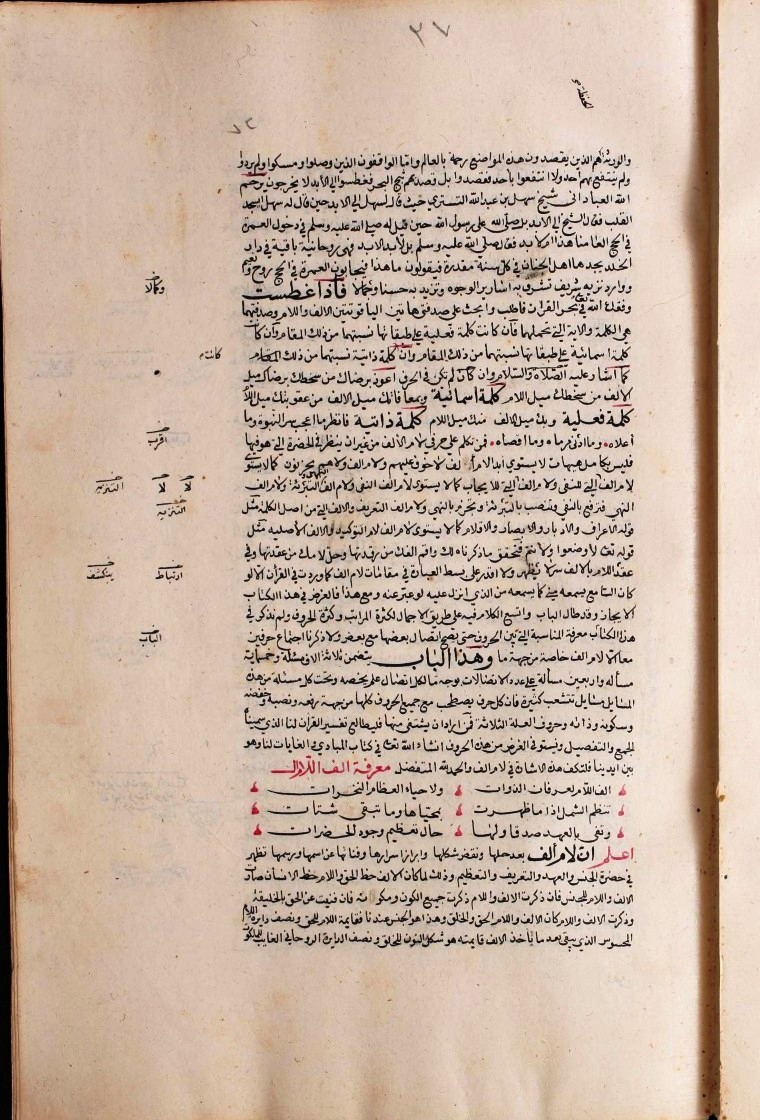 ٢٧
٧٢
والورثة هم الذين يقصدون هذه المواضع رحمة بالعالم واما الواقفون الذين وصلوا ومسكوا ولم يردوا
ولم ينتفع بهم احد ولا انتفعوا بأحد فقصدوا بل قصد بهم ثبج البحر فغطسوا الى الابد لا يخرجون يرحم
الله العباداني شيخ سهل بن عبد الله التستري حيث قال لسهل الى الابد حين قال له سهل ايسجد
القلب فقال الشيخ الى الابد بل صلى الله على رسول الله حين قيل له صلى الله عليه وسلم في دخول العمرة
في الحج العامنا هذا ام لابد فقال صلى الله عليه وسلم بل لأبد الابد فهي روحانية باقية في دار
الخلد يجدها اهل الجنان في كل سنة مقدرة فيقولون ما هذا فيجابون العمرة في الحج روح ونعيم
ووارد نزيه شريف تشرق به اسارير الوجوه وتزيد به حسنا وجمالا فاذا غطست
وكمالا
وفقك الله في بحر القرآن فاطلب وابحث على صدفتي هاتين الياقوتتين الالف واللام وصدفتهما
هي الكلمة والاية التي تحملهما فان كانت كلمة فعلية على طبقاتها نسبتهما من ذلك المقام وان كانت
كلمة اسمائية على طبقاتها نسبتهما من ذلك المقام وان كلمة ذاتية نسبتهما من ذلك المقام
كانت
كما اشار عليه الصلاة والسلام وان كان لم تكن في الحرف اعوذ برضاك من سخطك برضاك ميل
الالف من سخطك ميل اللام كلمة اسمائية وبمعافاتك ميل الالف من عقوبتك ميل اللام
كلمة فعلية وبك ميل الالف منك ميل اللام كلمة ذاتية فانظر ما اعجب سر النبوة وما
اعلاه وما ادنى مرماه وما اقصاه فمن تكلم على حرفي لام الالف من غير ان ينظر في الحضرة التي هو فيها
اقرب
فليس بكامل هيهات لا يستوي ابدا لام الف لا خوف عليهم ولام الف ولا هم يحزنون كما لا يستوي
لام الف التي للنفي ولام الف التي للايجاب كما لا يستوي لام الف النفي ولام الف التبرئة ولام الف
لا لا التبرئة
النهي فترفع بالنفي وتنصب بالتبرئة وتجزم بالنهي ولام الف التعريف والالف التي من اصل الكلمة مثل
التنزيه
قوله الاعراف والادبار والابصار والاقلام كما لا يستوي لام الف لام التوكيد والالف الاصلية مثل
قوله تعالى لاوضعوا ولانتم فتحقق ما ذكرناه لك واقم الفك من رقدتها وحل لامك من عقدتها وفي
عقد اللام بالالف سر لا يظهر ولا اقدر على بسط العبارة في مقامات لام الف كما وردت في القرآن الا لو
ارتباط ينكشف
كان السامع يسمعه مني كما يسمعه من الذي انزل عليه لو عبر عنه ومع هذا فالغرض في هذا الكتاب
الايجاز وقد طال الباب واتسع الكلام فيه على طريق الاجمال لكثرة المراتب وكثرة الحروف ولم نذكر في
هذا الكتاب معرفة المناسبة التي بين الحروف حتى يصح اتصال بعضها مع بعض ولا ذكرنا اجتماع حرفين
الباب
معا الا لام الف خاصة من جهة ما وهذا الباب يتضمن ثلاثة الاف مسئلة وخمسماية
مسألة واربعين مسألة على عدد الاتصالات بوجه ما لكل اتصال علم يخصه وتحت كل مسئلة من هذه
المسايل مسايل تتشعب كثيرة فان كل حرف يصطحب مع جميع الحروف كلها من جهة رفعه ونصبه وخفضه
وسكونه وذاته وحروف العلة الثلاثة فمن اراد ان يشتفي منها فليطالع تفسير القرآن لنا الذي سميناه
الجمع والتفصيل وسنستوفي الغرض من هذه الحروف انشاء الله تعالى في كتاب المبادي والغايات لنا وهو
بين ايدينا فلتكف هذه الاشارة في لام الف والحمد لله المتفضل معرفة الف اللام ال
الف اللام لعرفان الذوات ولاحياء العظام النخرات
تنظم الشمل اذا ما ظهرت بمحياها وما تبقي شتات
وتفي بالعهد صدقا ولها حال تعظيم وجود الحضرات
اعلم ان لام الف بعد حلها ونقض شكلها وابراز اسرارها وفنائها عن اسمها ورسمها تظهر
في حضرة الجنس والعهد والتعريف والتعظيم وذلك لما كان الالف حظ الحق واللام حظ الانسان صار
الالف واللام للجنس فاذا ذكرت الالف واللام ذكرت جميع الكون ومكونه فان فنيت عن الحق بالخليقة
وذكرت الالف واللام كان الالف واللام الحق والخلق وهذا هو الجنس عندنا فقايمة اللام للحق ونصف دايرة اللام
المحسوس الذي يبقى بعد ما يأخذ الالف قايمته هو شكل النون للخلق ونصف الدايرة الروحاني الغايب للملكوت